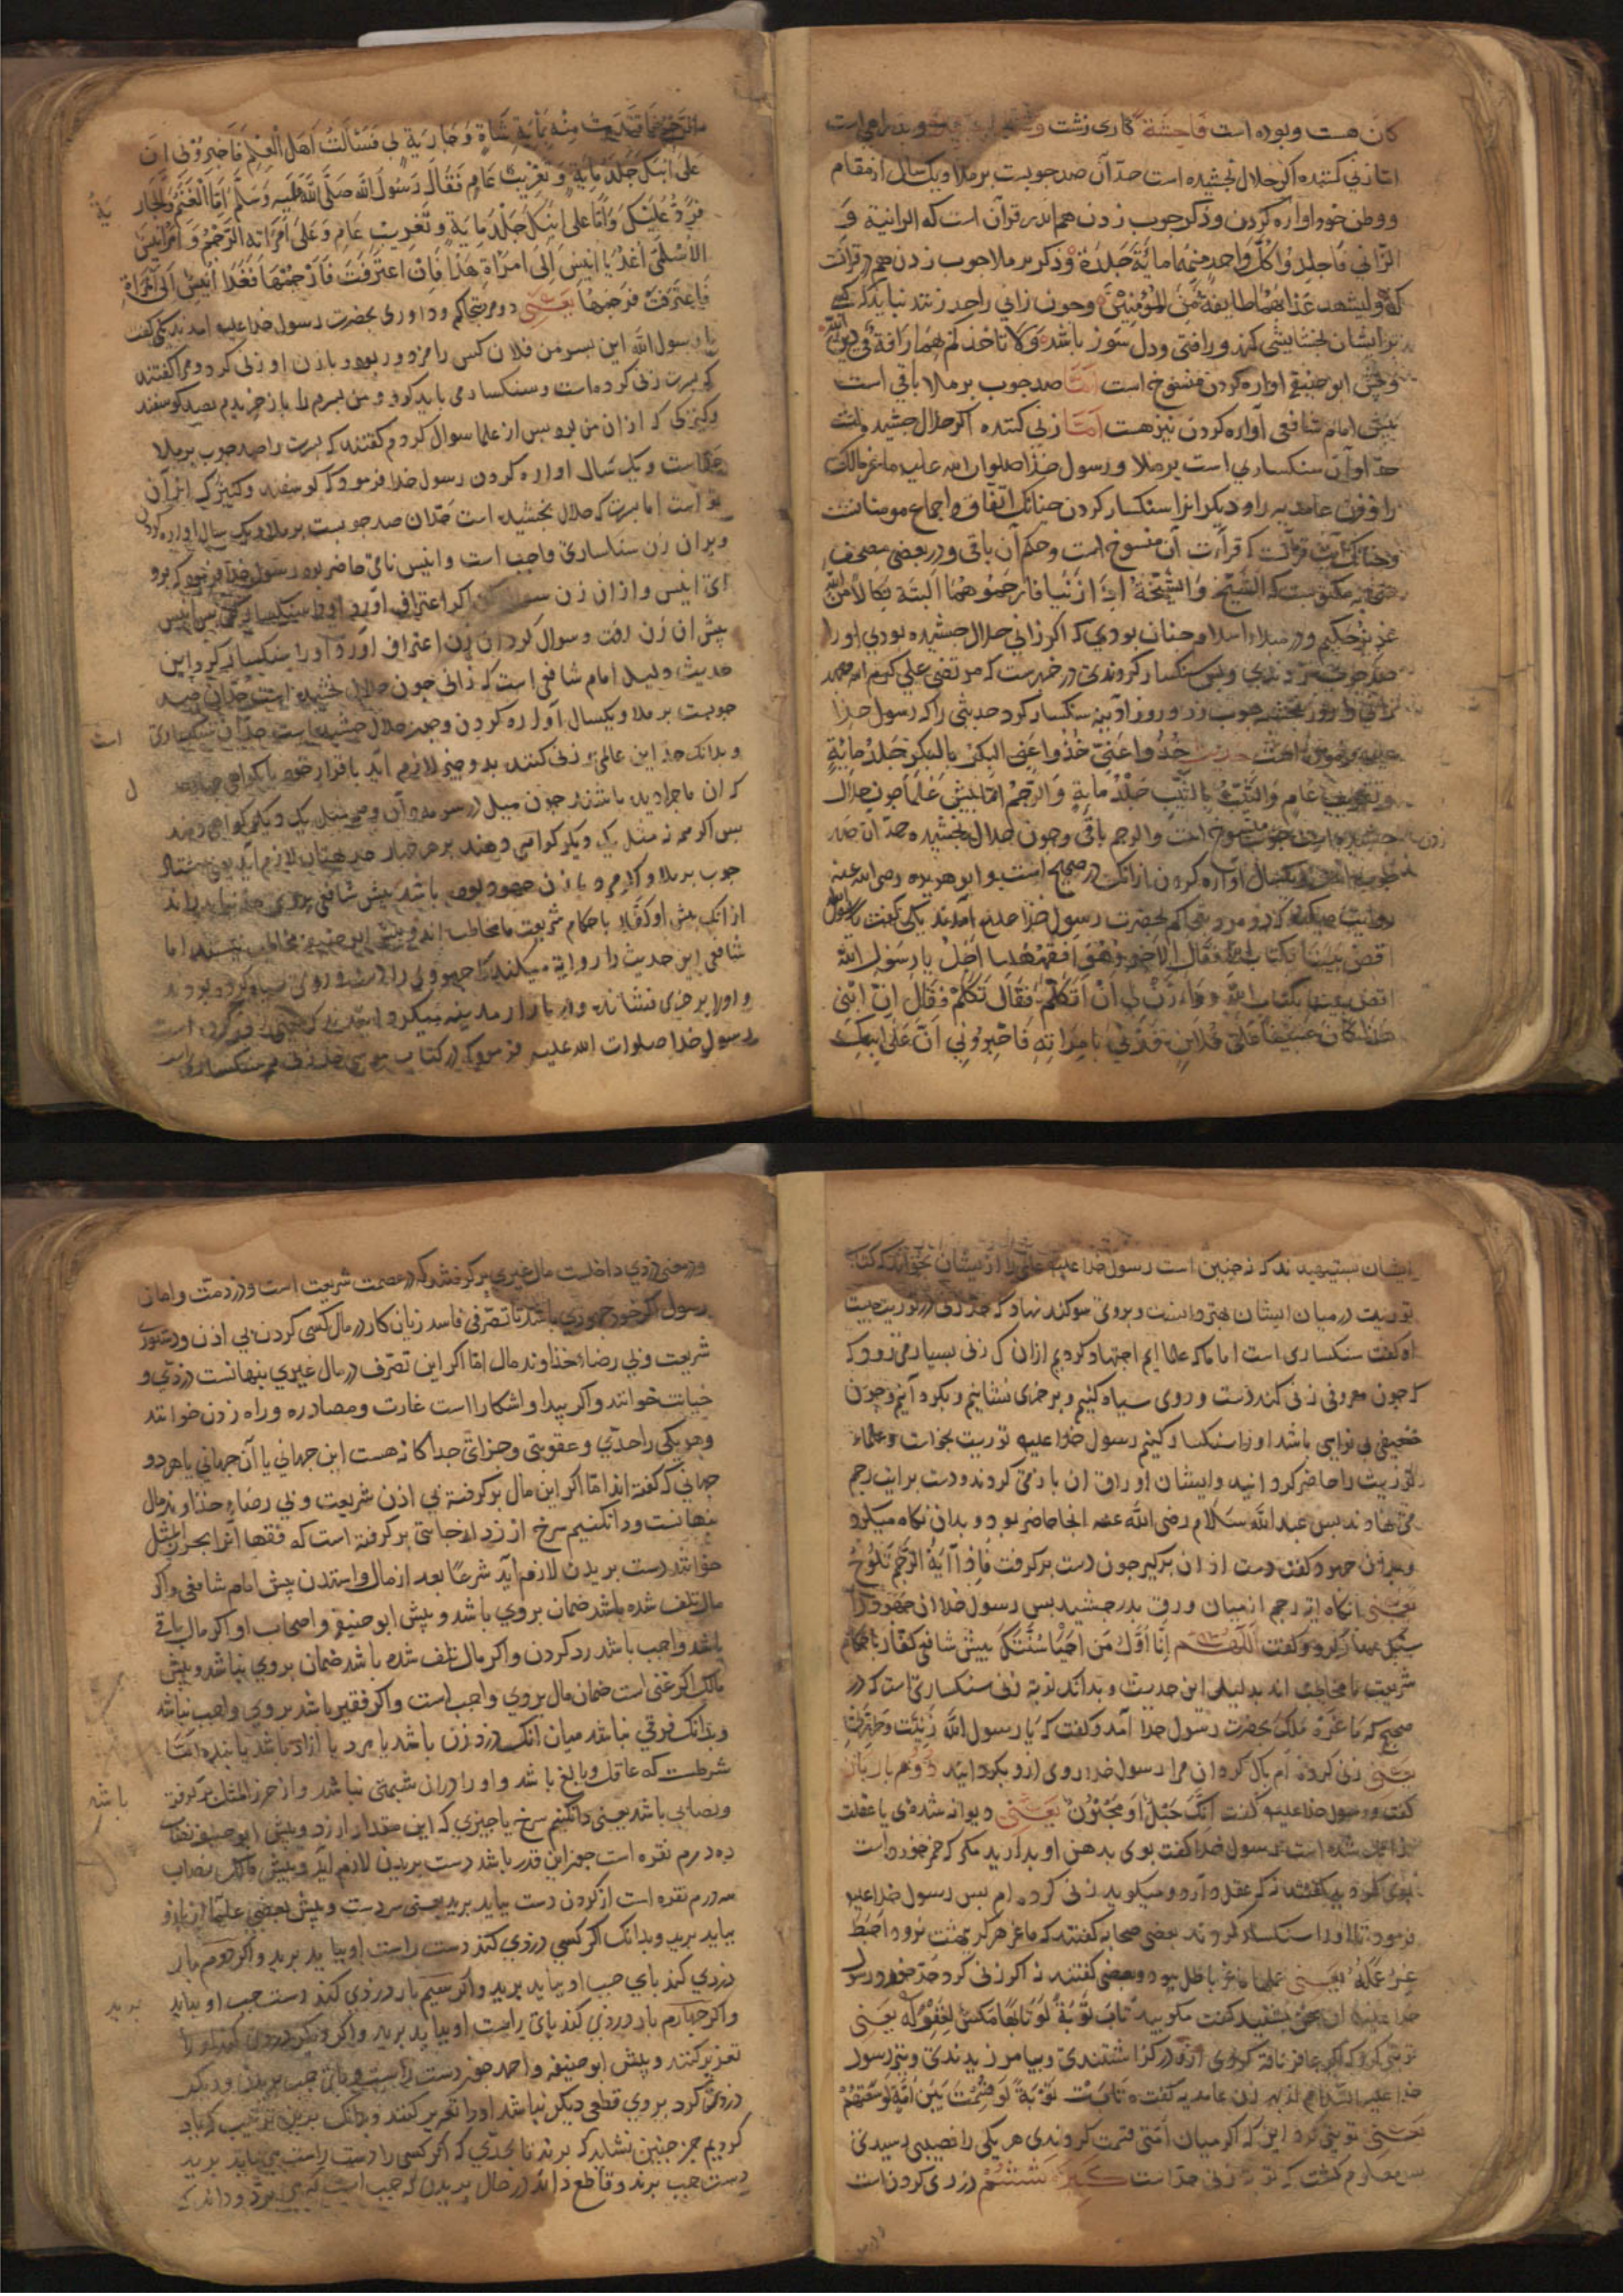 کان هست و بوده است فَاحِشَةً کاری زشت
اما زنی کننده اکر حلال نجشیده است حدّ آن صد جوبست بر ملا و یک سال از مقام
و وطن خود اواره کردن و ذکر جوب زدن هم اندر قرآن است که الزانیة و
الزّانی فَاجلِدُوا کُلَّ وَاحِدٍ مِنهُمَا مِائَةَ جَلدَةٍ و ذکر بر ملا جوب زدن هم در قرآنست
که ولیشهد عَذَابَهُمَا طَایفَةٌ مِّنَ المُؤمِنِینَ و جون زانی را حد زنند نباید که کسی
بر ایشان بخشایشی کند و رافتی و دل سوز باشد وَلَا تَأخُذکُم بِهِمَا رَأفَةٌ فِی دِینِ اللّٰه
و پیش ابو حنیفه اواره کردن منسوخ است اَمّا صد جوب بر ملا باقی است
پیش امام شافعی آواره کردن نیز هست اَمّا زنی کننده اکر حلال جشیده است
حدّ او آن سنکساری است بر ملا و رسول خدا صلوات الله علیه ماعز مالک
را و زن عامدیه را و دیکر انرا سنکسار کردن جنانک اتّفاق و اجماع مومنانست
و جنانک آیت قرآنست که قراءت آن منسوخ است و حکم آن باقی و در بعضی مصحف
مکتوبست که الشَّیخُ وَ الشَّیخَةُ اِذَا زَنَیَا فَارجُمُوهُمَا اَلبَتَّةَ نَکَالًا مِنَ اللّٰه
عَزِیزٌ حَکِیم و در مبداء اسلام جنان بودی که اکر زانی حلال جشیده بودی او را
صد جوب بزدندی و بس سنکسار کردندی در خبرست که مرتضی علی کرم الله وجهه
زانی را روز بنجشنبه جوب زد و روز آدینه سنکسار کرد حدیثی را که رسول خدا
خُذُوا عَنِّی خُذُوا عَنِّی البِکرُ بِالبِکرِ جَلدُ مِایَةٍ
وَ تَغرِیبُ عَامٍ وَ الثَّیِّبُ بِالثَّیِّبِ جَلدُ مِایَةٍ وَ الرَّجم اما پیش عُلَمَا جون حلال
جوب منسوخ است و الرجم باقی و جون حلال نجشیده حدّ ان صد
جوب است و یکسال اواره کردن از انک در صحیح است ابو هریره رضی الله عنه
روایت میکند که دو مرد بتحاکم بحضرت رسول خدا علیه آمدند یکی کفت یا رسول الله
اقض بَینَنَا بِکِتَاب الله فَقَالَ الآخَرُ وَهُوَ اَفقَهُهُمَا اَجَل یَا رَسُولَ اللهِ
اقض بیننا بکتاب الله وَاءذَن لِی اَن اَتَکَلَّمَ فَقَالَ تَکَلَّم فَقَالَ اِنَّ ابنِی
هٰذا کَانَ عَسِیفًا عَلَی فُلَانٍ فَزَنَی بِامرَاتِهِ فَاخبَرُونِی اَنَّ عَلَی ابنِکَ
الرَّجمَ فَافتَدَیتُ مِنهُ بِمِایَةِ شَاةٍ وَ جَارِیَةٍ لِی فَسَئَالتُ اَهلَ العِلمِ فَاَخبَرُونِی اَنَّ
عَلَی ابنِکَ جَلدُ مِایَةٍ وَ تَغرِیبُ عَامٍ فَقَالَ رَسُولُ اللهِ صَلَّی اللهُ عَلَیهِ وَسَلَّم اَمَّا الغَنَمُ وَ الجَارِیَةُ
فَرَدٌّ عَلَیکَ وَ اَمَّا عَلَی ابنِکَ جَلدُ مِایَةٍ وَ تَغرِیبُ عَامٍ وَ عَلَی امرَاتِهِ الرَّجمُ وَ اَمَرَ اُنَیسَ
الاَسلَمِی اُغدُ یَا اُنَیسُ اِلَی امرَاةِ هٰذَا فَاِنِ اعتَرَفَت فَارجُمهَا فَغَدَا اُنَیسُ اِلَی امرَاةٍ
فَاعتَرَفَت فَرَجَمَهَا یَعنِی دو مرد بتحاکم و داوری بحضرت رسول خدا علیه امدند یکی کفت
یا رسول الله این بسر من فلان کس را مزدور بود و با زن او زنی کرد و مرا کفتند
که بسرت زنی کرده است و سنکسار می باید کرد و من بسرم را باز خریدم بصد کوسفند
و کنیزکی که از ان من بود بس از علما سوال کردم و کفتند که بسرت را صد جوب بر ملا
حدّ است و یک سال اواره کردن رسول خدا فرمود که کوسفند و کنیزک از آن
تو است اما بسرت که حلال نجشیده است حدّ ان صد جوبست بر ملا و یک سال اواره کردن
و بر ان زن سنکساری واجب است و انیس نامی حاضر بود رسول خدا فرمود که برو
ای انیس و از ان زن سوال کن اکر اعتراف آورد او را سنکسار کن بس انیس
پیش ان زن رفت و سوال کرد ان زن اعتراف آورد او را سنکسار کرد و این
حدیث دلیل امام شافعی است که زانی جون حلال نجشیده است حدّ آن صد
جوبست بر ملا و یکسال آواره کردن و جون حلال جشیده است حدّ آن سنکساری است
و بدانک حدّ این عالمی زنی کننده بدو جیز لازم آید باقرار خود یا بکواهی جهار مرد
که ان ماجرا دیده باشند جون میل در سرمه دان و همه مثل یک دیکر کواهی دهند
بس اکر همه نه مثل یک دیکر کواهی دهند بر هر جهار حد بهتان لازم آید یعنی هشتاد
جوب بر ملا و اکر مرد یا زن جهود بود باشد پیش شافعی بر وی حد نباید راند
از انک پیش او کفّار باحکام شریعت مخاطب اند و پیش ابو حنیفه مخاطب نیستند اما
شافعی این حدیث را روایة میکند که جهودی را دست و روی سیاه کرده بودند
و او را بر خری نشانده و در بازار مدینه میکردانیدند که زنی کرده است
رسول خدا صلوات الله علیه فرمود که در کتاب موسی حدّ زنی هم سنکساری است
ایشان بستیهیدند که نه جنین است رسول خدا علیه عالمی را از ایشان بخواند که کتاب
توریت در میان ایشان بهتر دانست و بر وی سوکند نهاد که حدّ زنی در توریت جیست
او کفت سنکساری است اما ما که علما ایم اجتهاد کردیم از ان که زنی بسیار می رود که
که جون معروفی زنی کند دست و روی سیاه کنیم و بر خری نشانیم و بکردانیم و جون
ضعیفی بی نوایی باشد او را سنکسار کنیم رسول خدا علیه توریت بخواست و علماء
توریت را حاضر کردانید و ایشان اوراق ان باز می کردند و دست بر ایت رجم
می نهادند بس عبد الله سلام رضی الله عنه انجا حاضر بود و بدان نکاه میکرد
و بر ان جهود کفت دست از ان برکیر جون دست برکرفت فَاِذَا آیَةُ الرَّجمِ تَلُوحُ
یَعنِی انکاه ایة رجم از میان ورق بدرخشید بس رسول خدا ان جهود را
سنکسار کرد و کفت اَللّٰهُمَّ اِنَّا اَوَّلُ مَن اَحیَا سُنَّتَکَ پیش شافعی کفّار باحکام
شریعت مخاطب اند بدلیل این حدیث و بدانک توبة زنی سنکساری است که در
صحیح که ماعزة ملک بحضرت رسول خدا آمد و کفت که یا رسول اللهِ زَنَیتُ وَ طَهِّرنِی
یَعنِی زنی کردم ام باک کردان مرا رسول خدا روی از و بکردانید دوم بار باز
کفت و رسول خدا علیه کفت اَبِکَ خَبَلٌ اَو مَجنُونٌ یَعنِی دیوانه شدهٔ یا عقلت
زایل شده است رسول خدا کفت بوی بدهن او بدارید مکر که خمر خورد است
بوی کردند کفتند نه که عقل دارد و میکوید زنی کرده ام بس رسول خدا علیه
فرمود تا او را سنکسار کردند بعضی صحابه کفتند که ماعز هرکز ببهشت نرود اَحبَطَ
عَزَّ عَمَلَهُ یَعنِی عملها ماعز باطل بود و بعضی کفتند نه اکر زنی کرد حدّ خورد رسول
خدا علیه ان سخن بشنید کفت مکویید تَابَ تَوبَةً لَو تَابَهَا مَکسٌ لَغُفِرَ لَهُ یَعنِی
توبتی کرد که
خدا علیه السلام از بهر زن عامدیه کفت تَابَت تَوبَةً لَو قُسِّمَت بَینَ اُمَّةٍ لَوَسِعَتهُم
یَعنِی توبتی کرد این که اکر میان اُمّتی قسمت کردندی هر یکی را نصیبی رسیدی
بس معلوم کشت که توبة زنی حدّ است کبیرهٔ ششُم دزدی کردن است
و در معنی دزدی داخلست مال غیری برکرفتن که در عصمت شریعت است و در ذمّت و امان
رسول اکر خود جهودی باشد تا تصرّفی فاسد زیان کار در مال کسی کردن بی اذن و دستوری
شریعت و بی رضاء خذاوند مال امّا اکر این تصرّف در مال غیری بنهانست دزدی و
خیانت خوانند و اکر پیدا و اشکارا است غارت و مصادره و راه زدن خوانند
و هر یکی را حدّی و عقوبتی و جزائی جداکانه هست این جهانی یا آن جهانی یا هر دو
جهانی که کفته اند امّا اکر این مال برکرفتن بی اذن شریعت و بی رضاء خذاوند مال
بنهانست و دانکنیم سرخ از زر از جائی برکرفته است که فقها انرا بحرز المثل
خوانند دست بریدن لازم آید شرعًا بعد از مال واستدن پیش امام شافعی و اکر
مال تلف شده باشد ضمان بر وی باشد و پیش ابو حنیفه و اصحاب او اکر مال باقی
باشد واجب باشد رد کردن و اکر مال تلف شده باشد ضمان بر وی نباشد و پیش
مالک اکر غنی است ضمان مال بر وی واجب است و اکر فقیر باشد بر وی واجب نباشد
و بدانک فرقی نباشد میان انک دزد زن باشد یا مرد یا آزاد باشد یا بنده امّا
شرطست که عاقل و بالغ باشد و او را در ان شبهتی نباشد و از حرز المثل برکرفته باشد
و نصابی باشد یعنی دانکنیم سرخ یا جیزی که این مقدار ارزد و پیش ابو حنیفه نصاب
ده درم نقره است جون این قدر باشد دست بریدن لازم آید و پیش مالک نصاب
سه درم نقره است از کردن دست بباید برید یعنی سر دست و پیش بعضی علما از بازو
بباید برید و بدانک اکر کسی دزدی کند دست راست او بباید برید و اکر دوم بار
دزدی کند بای جب او بباید برید و اکر سیم بار دزدی کند دست جب او بباید برید
و اکر جهارم بار دزدی کند بای راست او بباید برید و اکر دیکر دزدی کند او را
تعزیر کنند و پیش ابو حنیفه و احمد جون دست راست و بای جب بریدند و دیکر
دزدی کرد بر وی قطعی دیکر نباشد او را تعزیر کنند و بدانک برین ترتیب که یاد
کردیم جز جنین نشاید که برند تا بحدّی که اکر کسی را دست راست می باید برید
دست جب برند و قاطع داند در حال بریدن که جب است که می برد و داند که